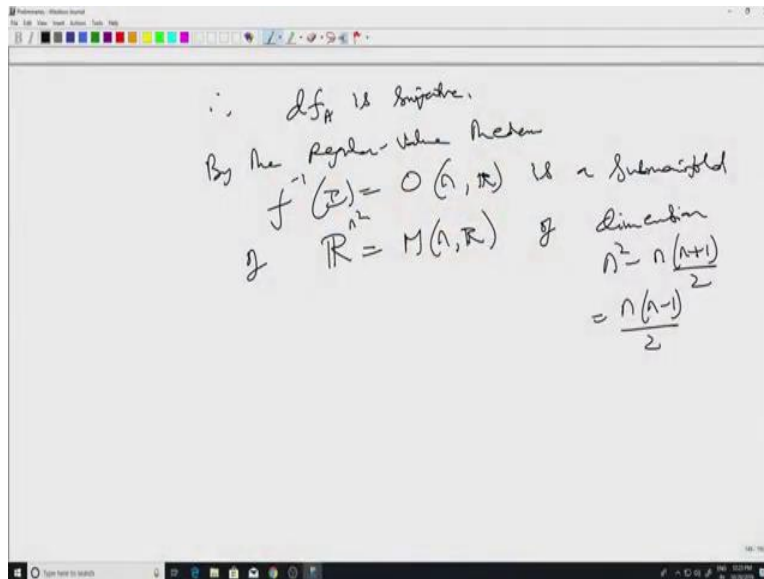 Preliminaries - Windows Journal
File Edit View Insert Actions Tools Help
B I
∴ df_A is surjective.
By the Regular-Value Theorem
f^{-1}(I) = O(n, ℝ) is a submanifold
of ℝ^{n^2} = M(n, ℝ) of dimension
n^2 - n(n+1)/2
= n(n-1)/2
Type here to search